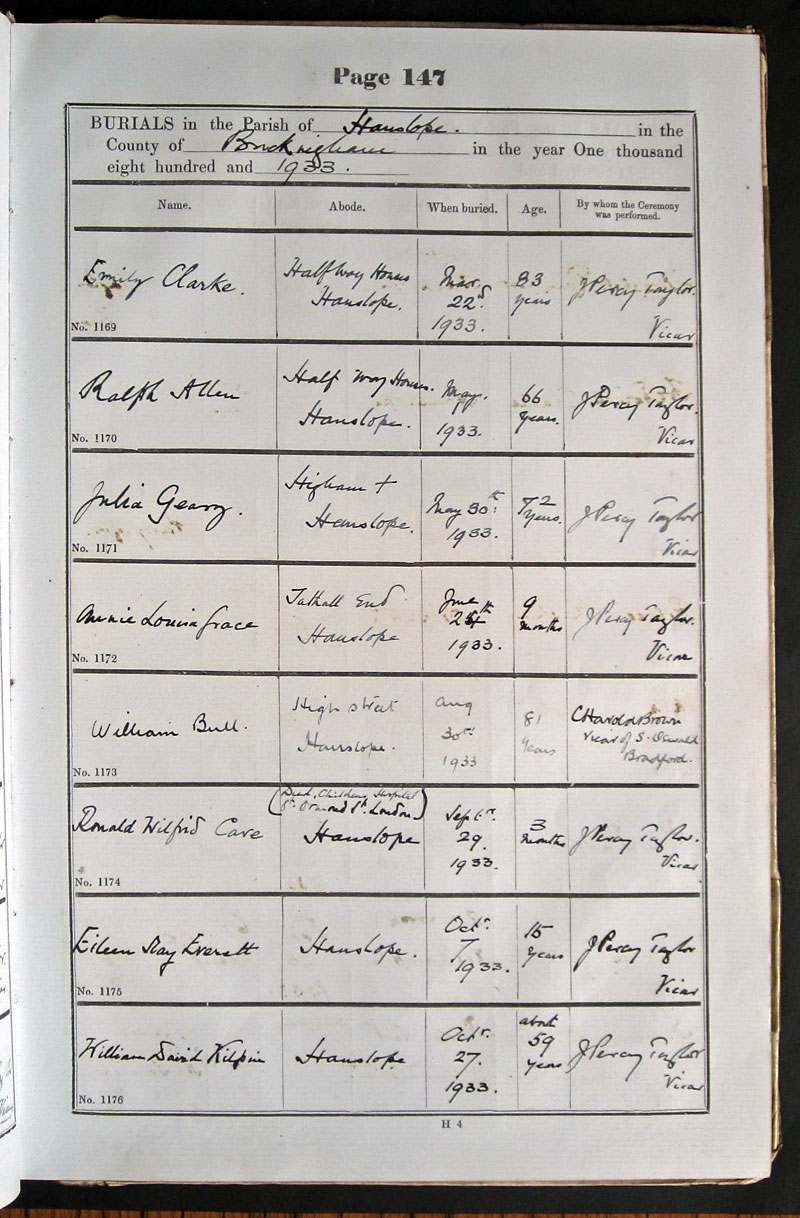 Page 147
BURIALS in the Parish of Hanslope. in the
County of Buckingham in the year One thousand
eight hundred and 1933.
Name. Abode. When buried. Age. By whom the Ceremony was performed.
Emily Clarke. Half Way Houses Mar 83 J Percy Taylor.
Hanslope. 22nd years Vicar
No. 1169 1933.
Ralph Allen Half Way Houses. May. 66 J Percy Taylor.
Hanslope. years. Vicar
No. 1170 1933.
Julia Geary. Higham + May 30th 72 J Percy Taylor
Hanslope. 1933. years. Vicar
No. 1171
Annie Louisa Grace Tathall End June 9 J Percy Taylor.
Hanslope months Vicar
No. 1172 1933.
William Bull. High street Aug 81 C Harold Brown
Hanslope. 30th years Vicar of S. Oswald
No. 1173 1933 Bradford.
Ronald Wilfrid Cave (Died, Childrens Hospital Septr. 3 J Percy Taylor.
Gt. Ormond St. London) 29. months Vicar
Hanslope 1933.
No. 1174
Eileen May Everett Hanslope. Octr. 15 J Percy Taylor
7 years Vicar
No. 1175 1933.
William David Kilpin Hanslope Octr. about J Percy Taylor
27. 59 Vicar
No. 1176 1933. years
H 4